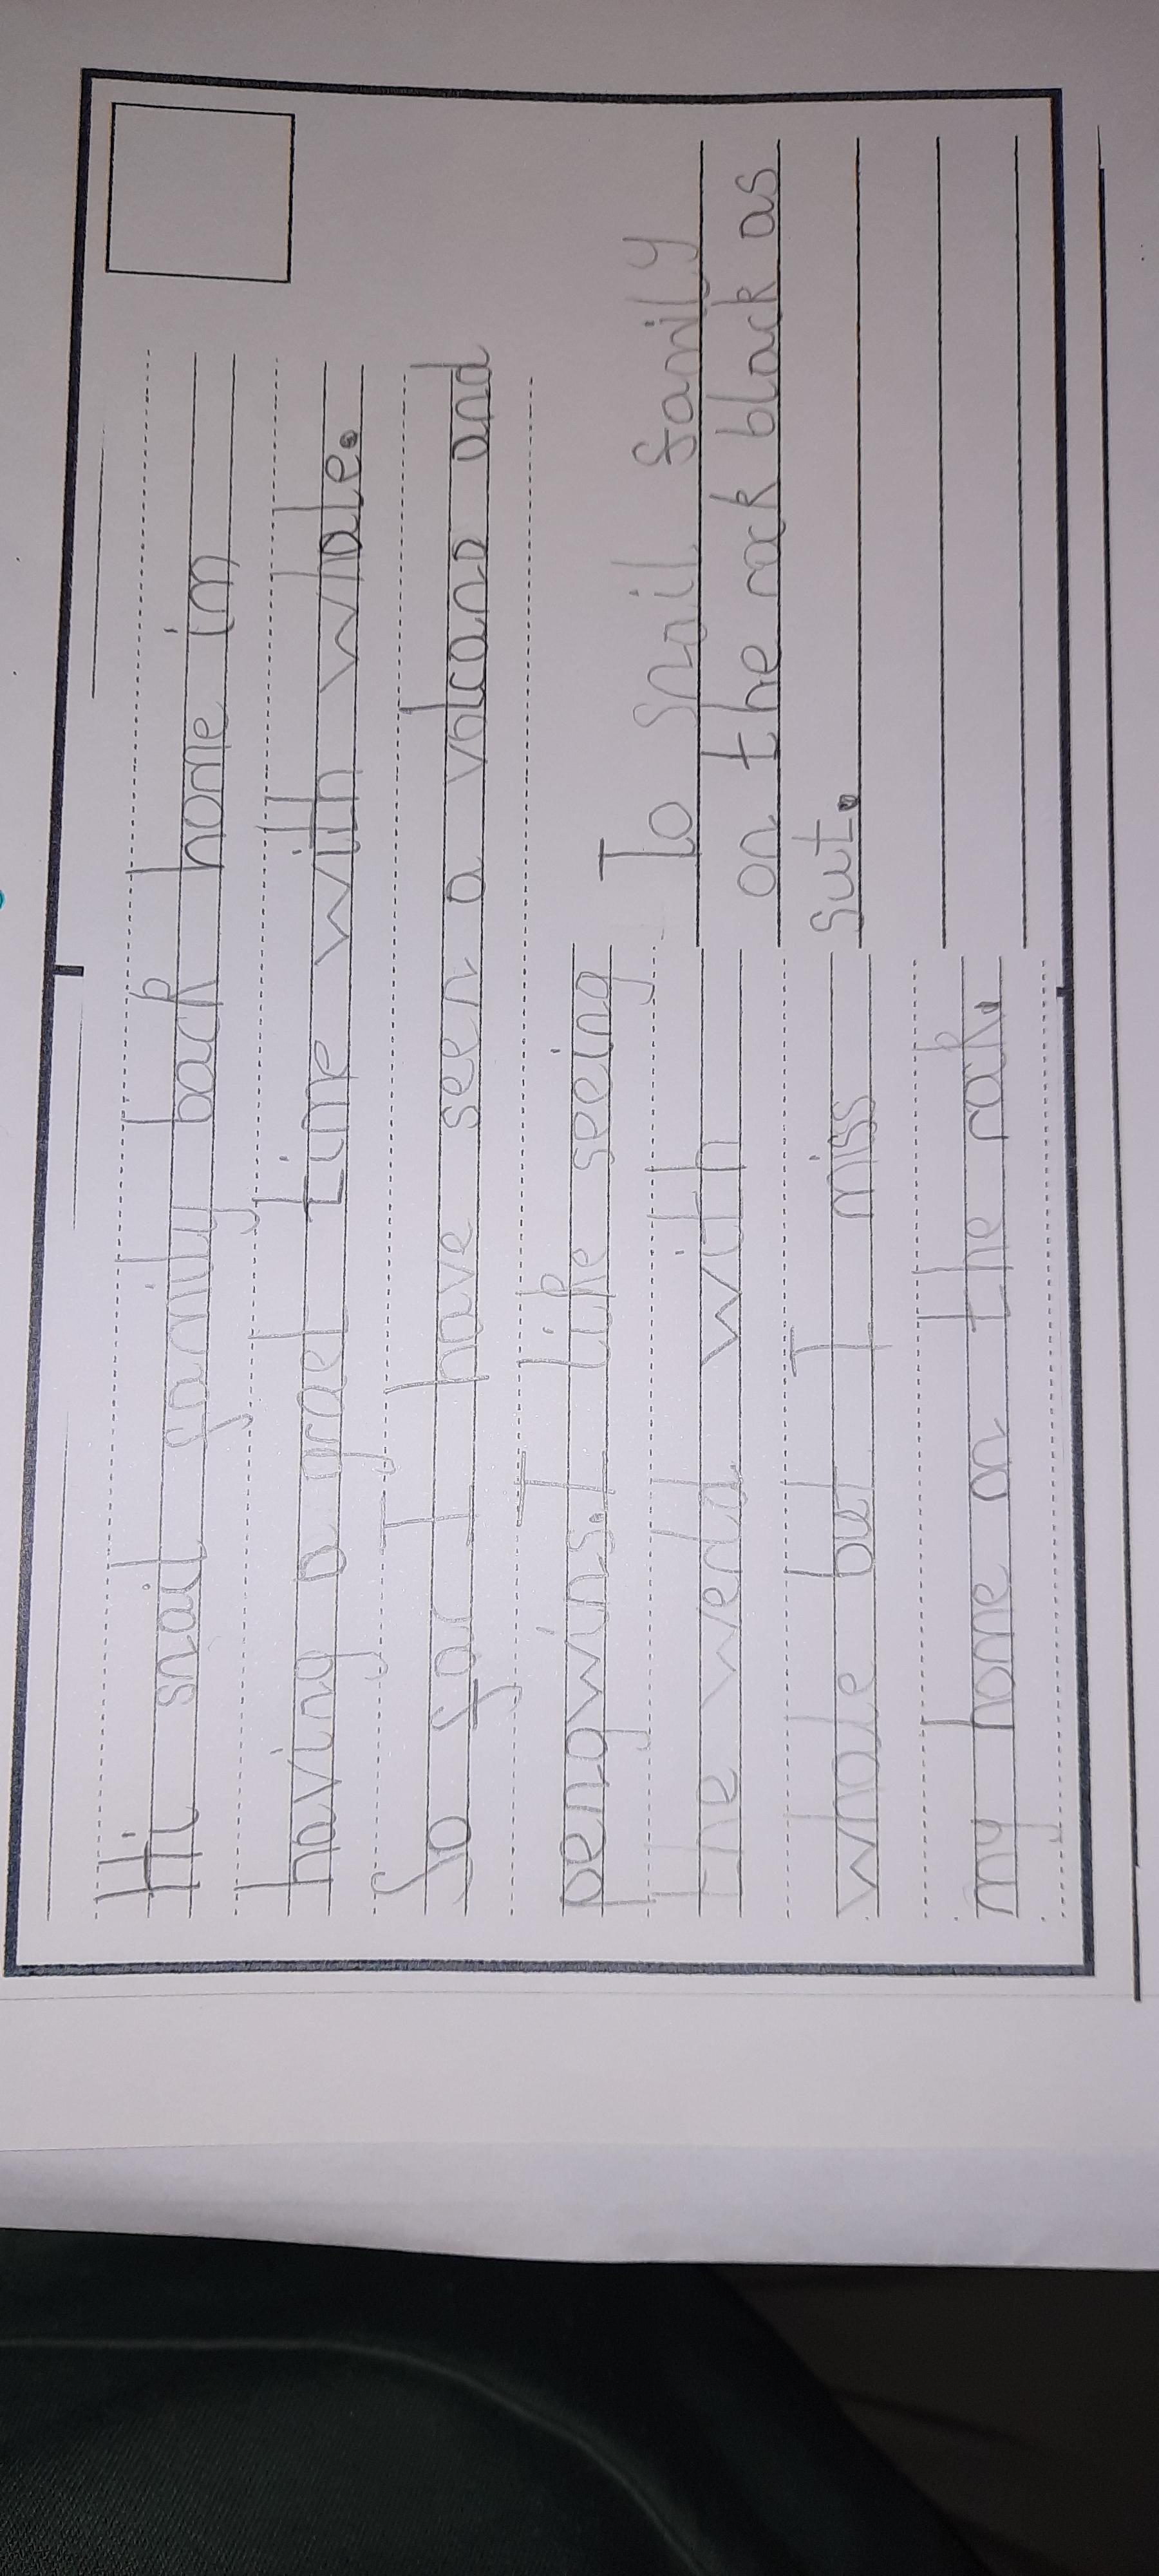 Hi snail family back home im
having a graet time with whale.
So far I have seen a volcano and
pengwins. I like seeing
the werld with
whale but I miss
my home on the rak.
To snail family
on the rock black as
sut.